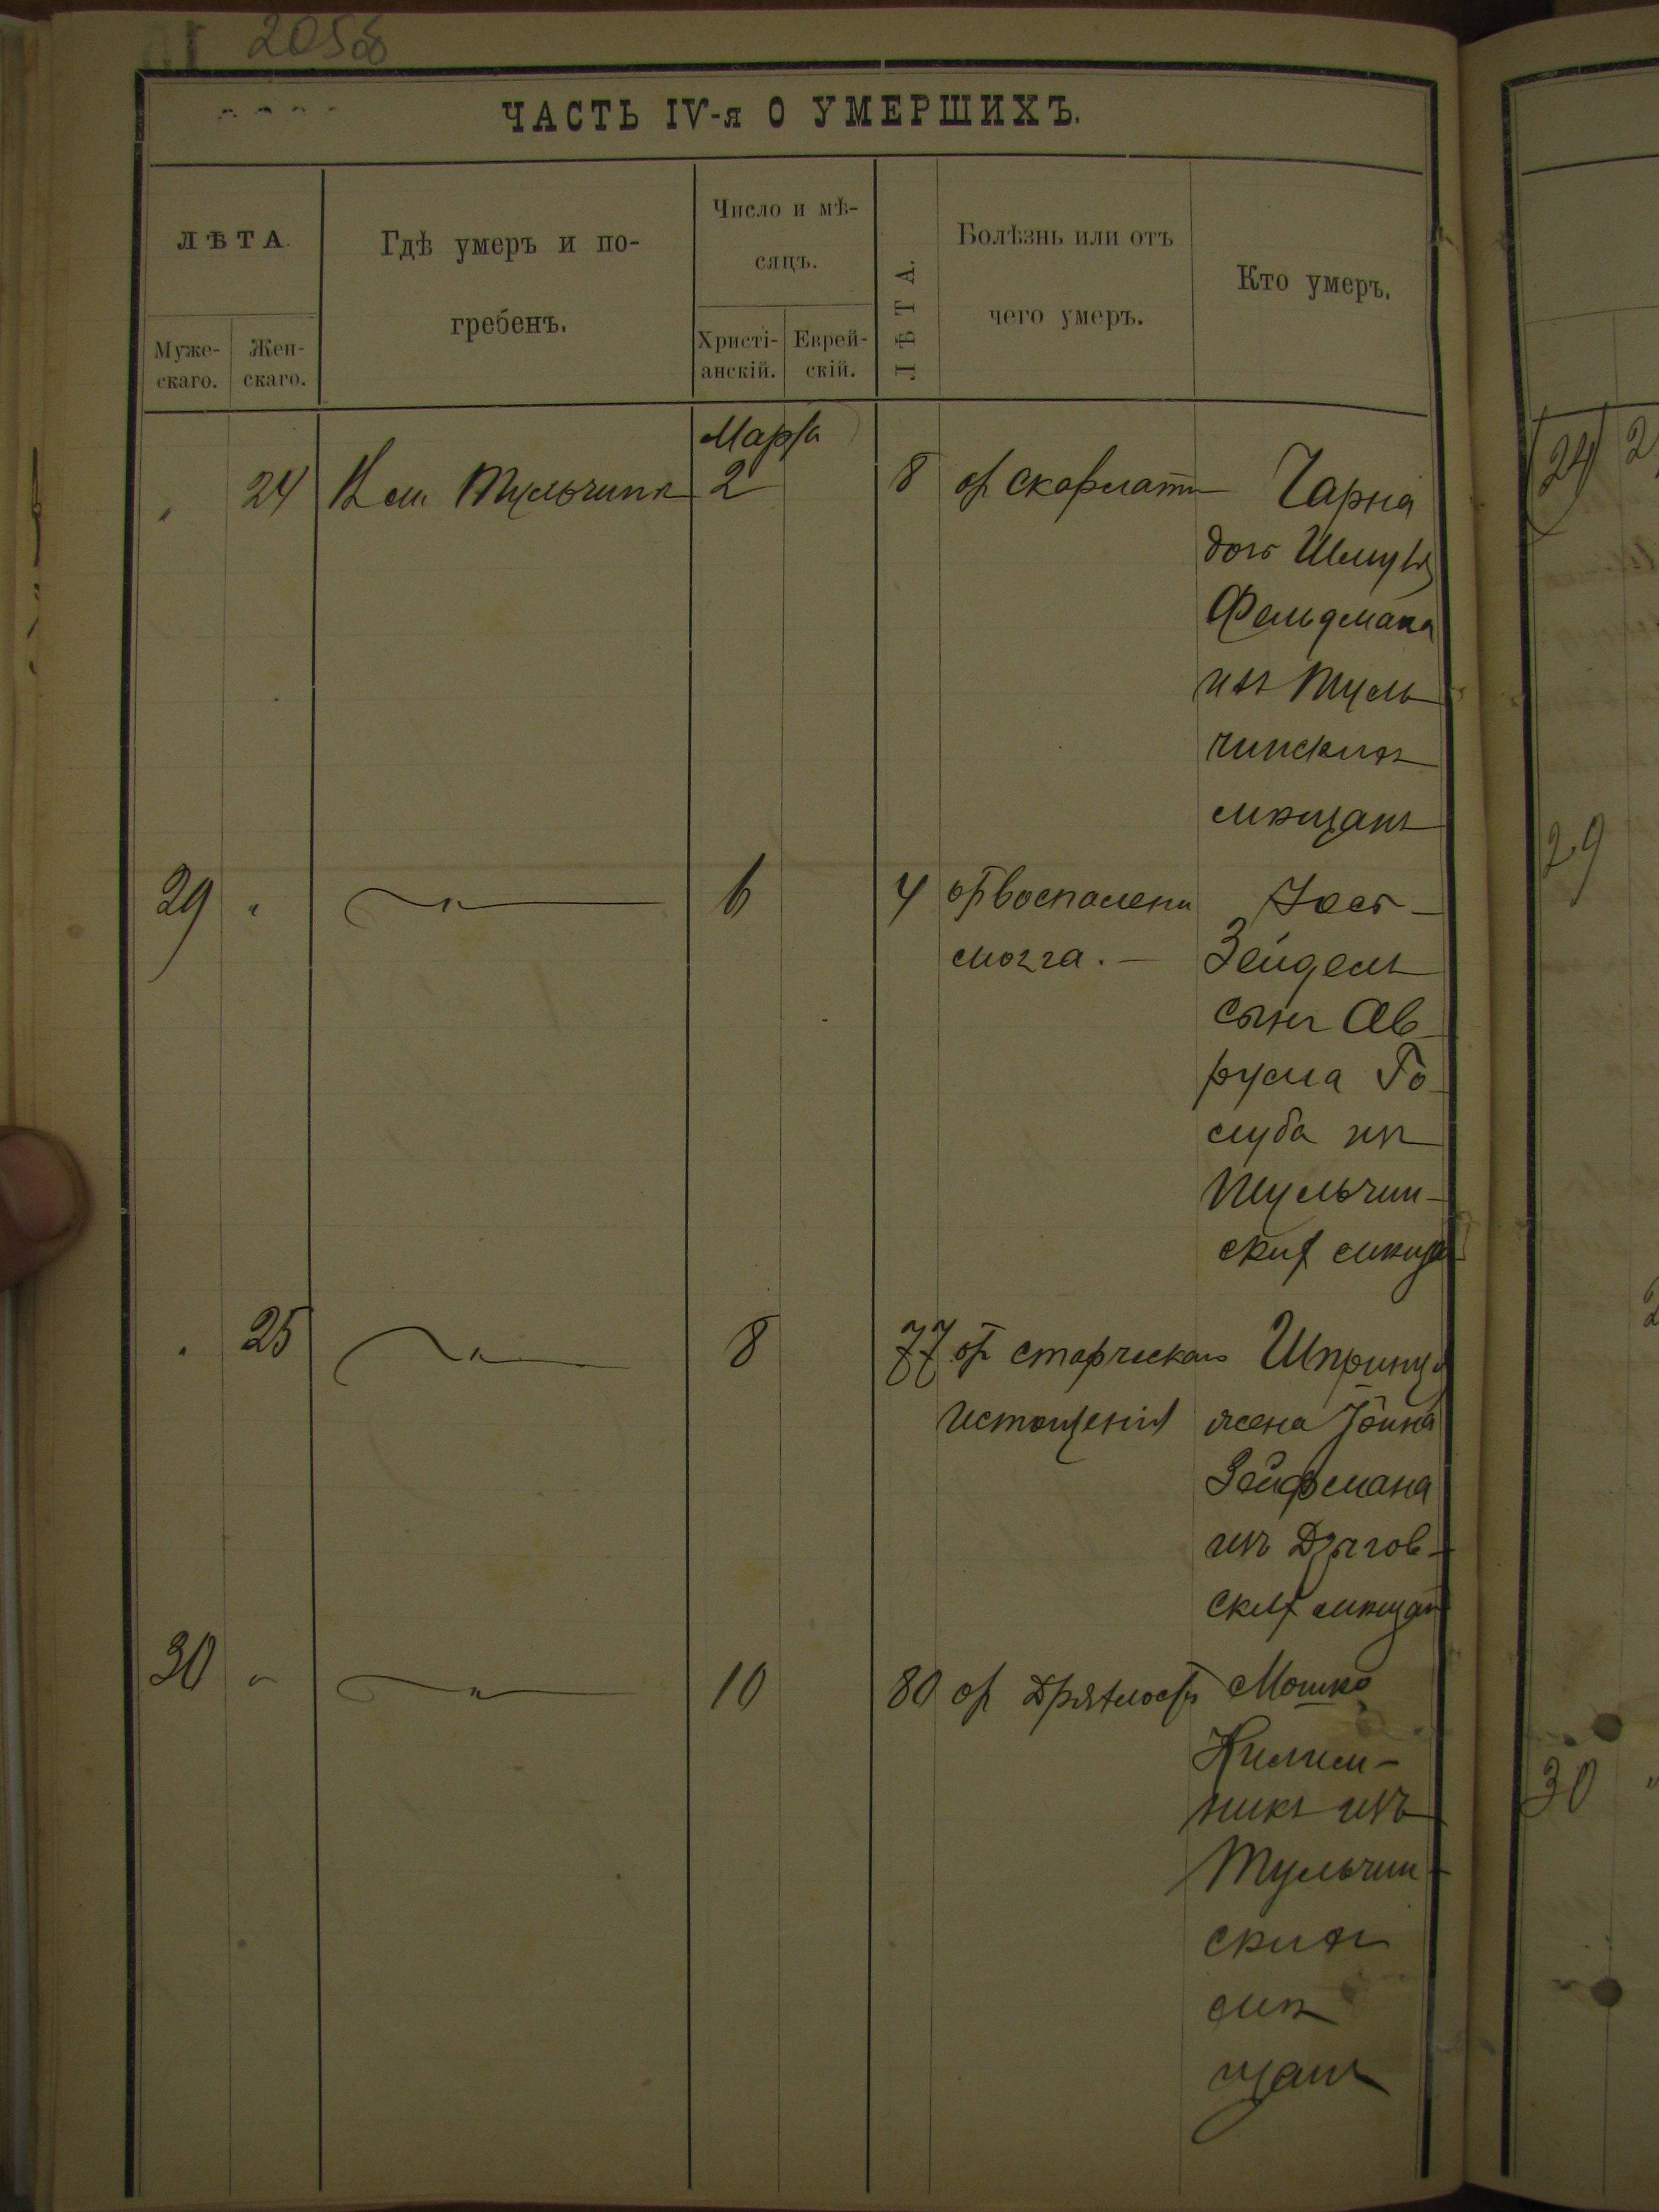 205об
ЧАСТЬ IV-я О УМЕРШИХЪ.
ЛѢТА.
Муже-
скаго.
Жен-
скаго.
Гдѣ умеръ и по-
гребенъ.
Число и мѣ-
сяцъ.
Христі-
анскій.
Еврей-
скій.
ЛѢТА.
Болѣзнь или отъ
чего умеръ.
Кто умеръ.
Марта
" 24 Тульчинѣ 2 8 от скарлатин Чарна
дочь Шмуля
Фельдмана
изъ Туль
чинскихъ
мѣщанъ
29 " " 6 4 от воспалени Иось-
мозга. Зейдель
сынъ Ав
рума Го
луба изъ
Тульчин-
ских мѣща
" 25 " 8 77 от старческаго Шпринца
истощенія жена Іойна
Зейфмана
изъ Дзыгов-
ских мѣщан
30 " " 10 80 от Дряхлости Мошко
Килим-
никъ изъ
Тульчин-
скихъ
мѣ
щанъ
24
29
30